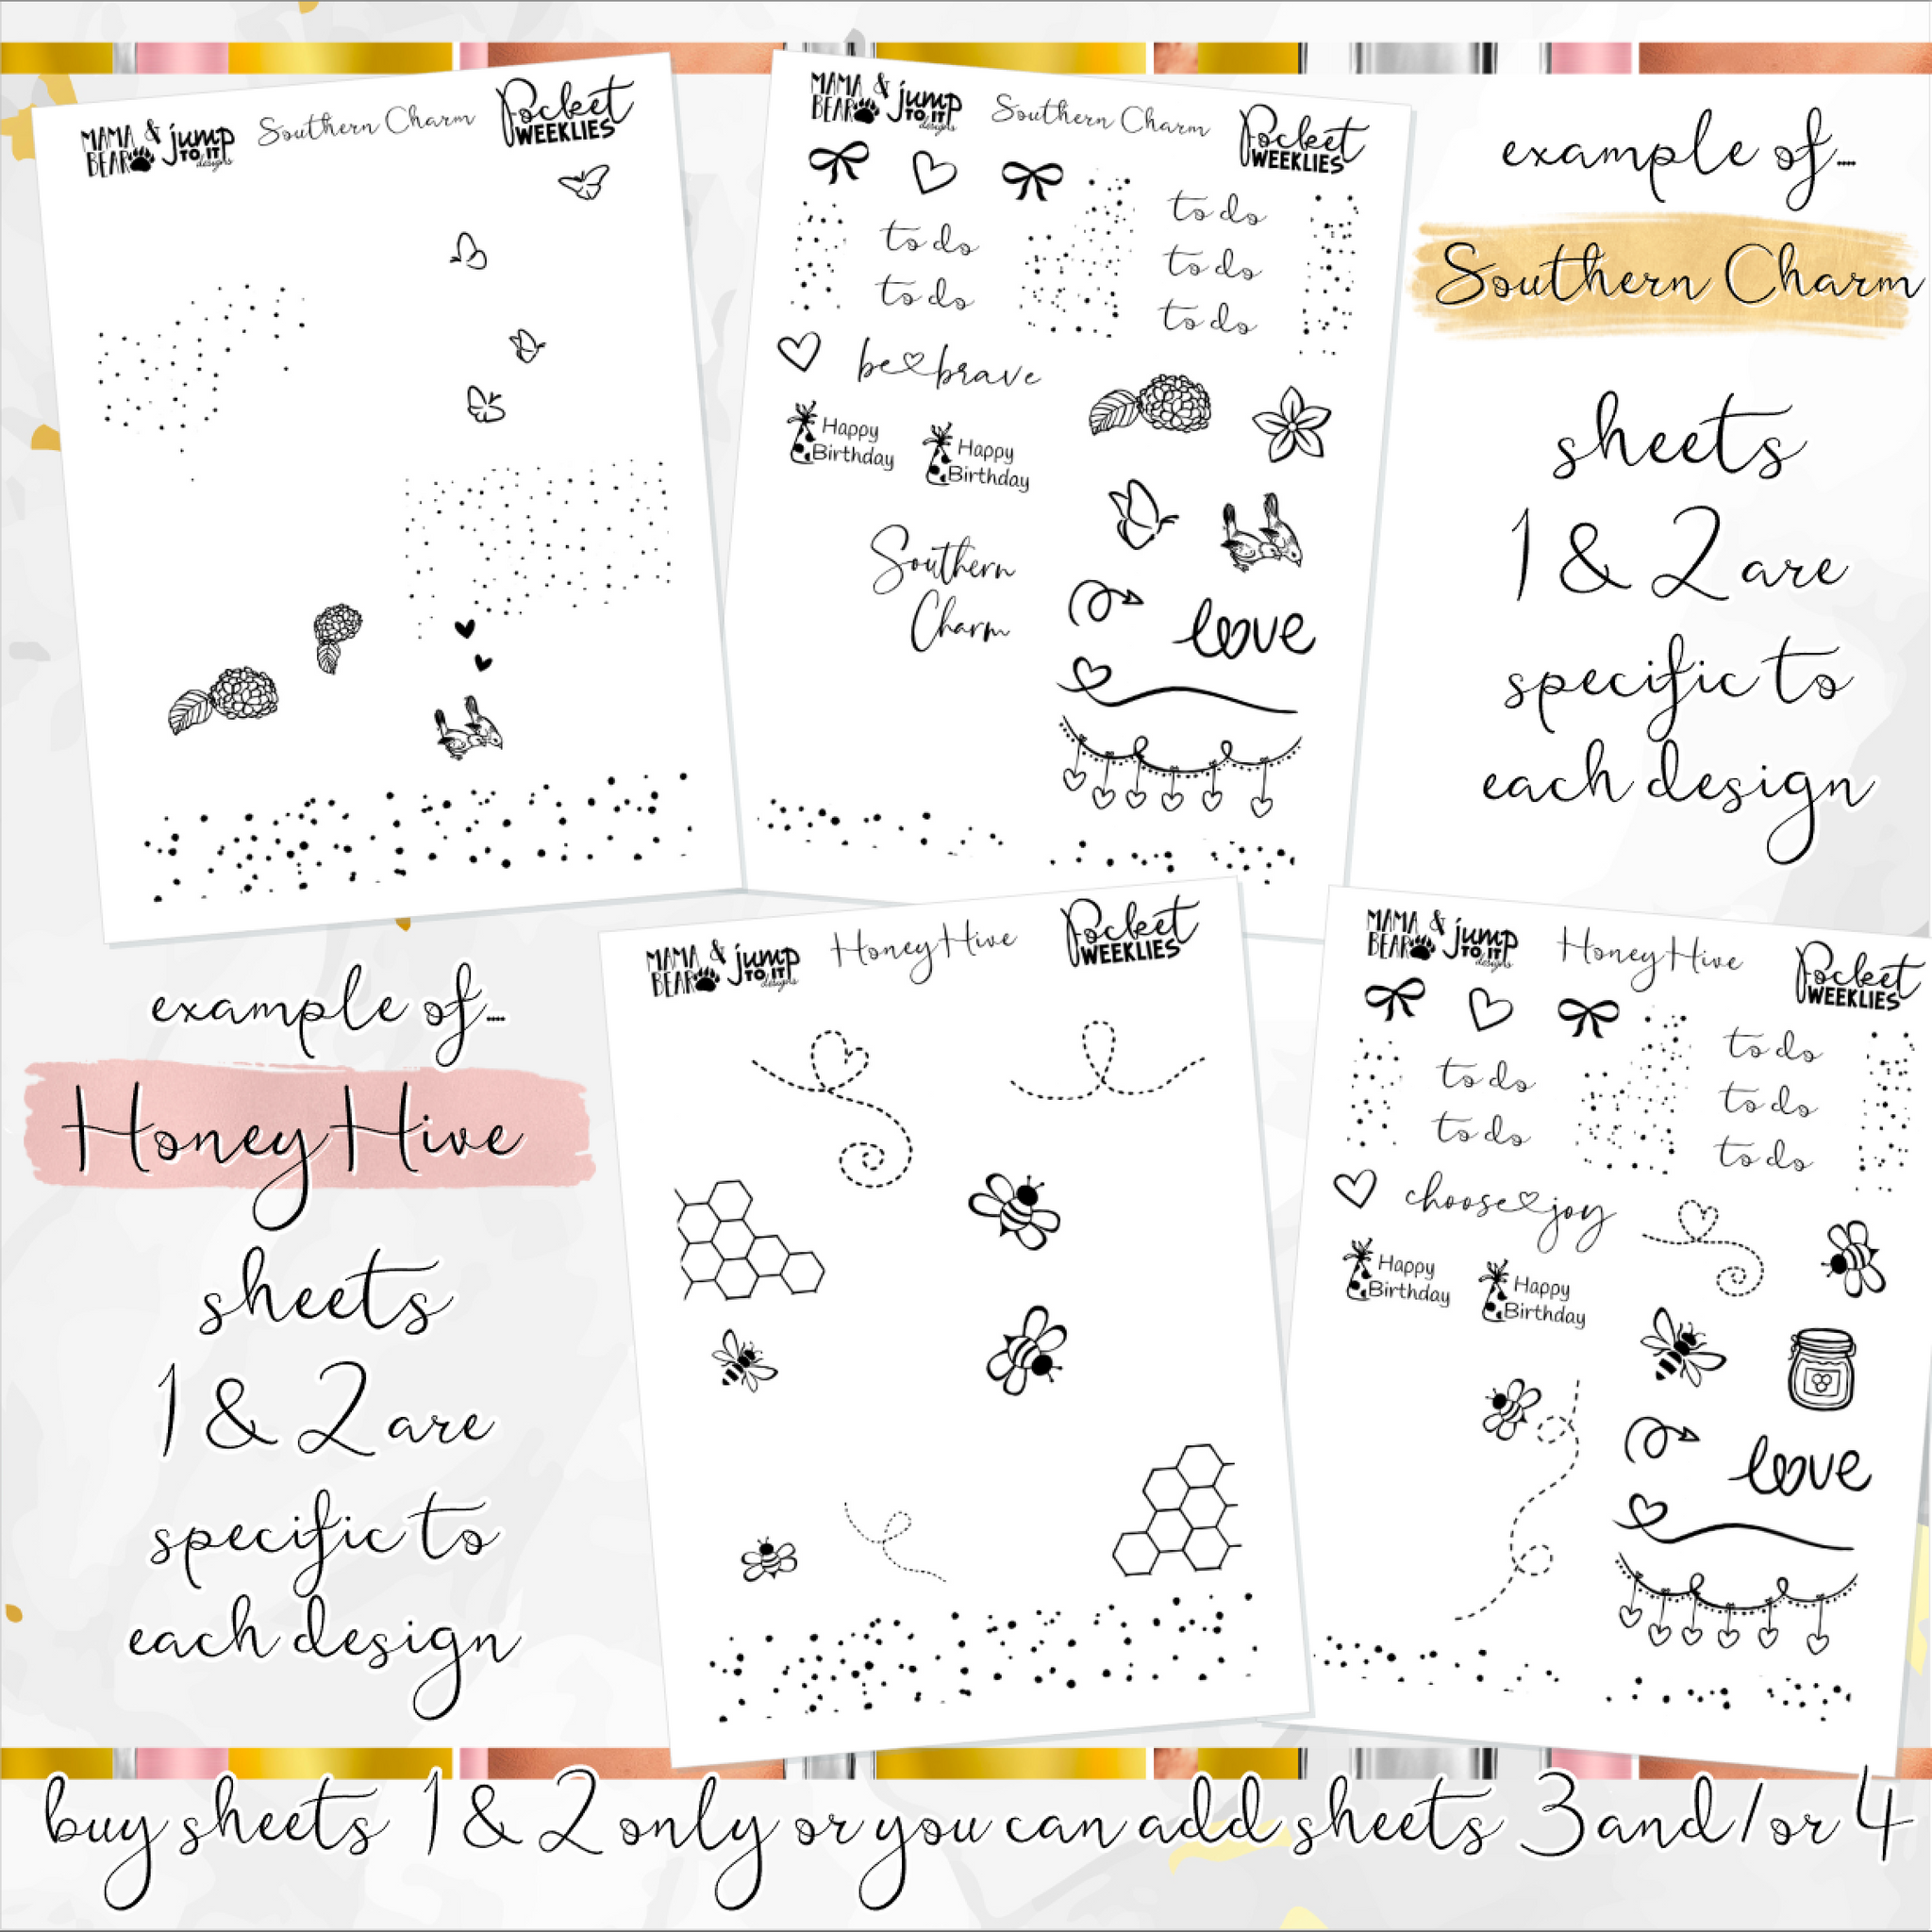 MAMA & jump
BEAR TO IT
designs
Southern Charm
Pocket
WEEKLIES
MAMA & jump
BEAR TO IT
designs
Southern Charm
Pocket
WEEKLIES
to do
to do
to do
to do
to do
be brave
Happy
Birthday
Happy
Birthday
Southern
Charm
love
example of....
Southern Charm
sheets
1 & 2 are
specific to
each design
example of....
Honey Hive
sheets
1 & 2 are
specific to
each design
MAMA & jump
BEAR TO IT
designs
Honey Hive
Pocket
WEEKLIES
MAMA & jump
BEAR TO IT
designs
Honey Hive
Pocket
WEEKLIES
to do
to do
to do
to do
to do
choose joy
Happy
Birthday
Happy
Birthday
love
buy sheets 1 & 2 only or you can add sheets 3 and/or 4